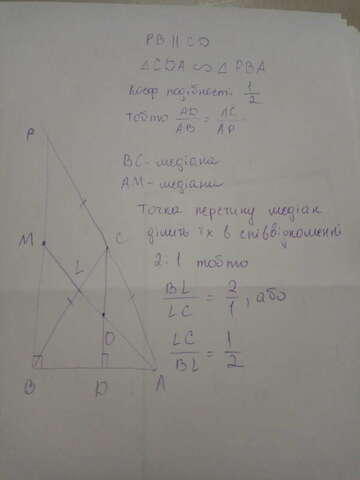 PB || CD
△CDA ∽ △PBA
Коеф подібності 1/2
тобто AD/AB = AC/AP
BC - медіана
AM - медіана
Точка перетину медіан
ділить їх в співвідношенні
2:1 тобто
BL/LC = 2/1, або
LC/BL = 1/2
P
M
L
C
O
B
D
A